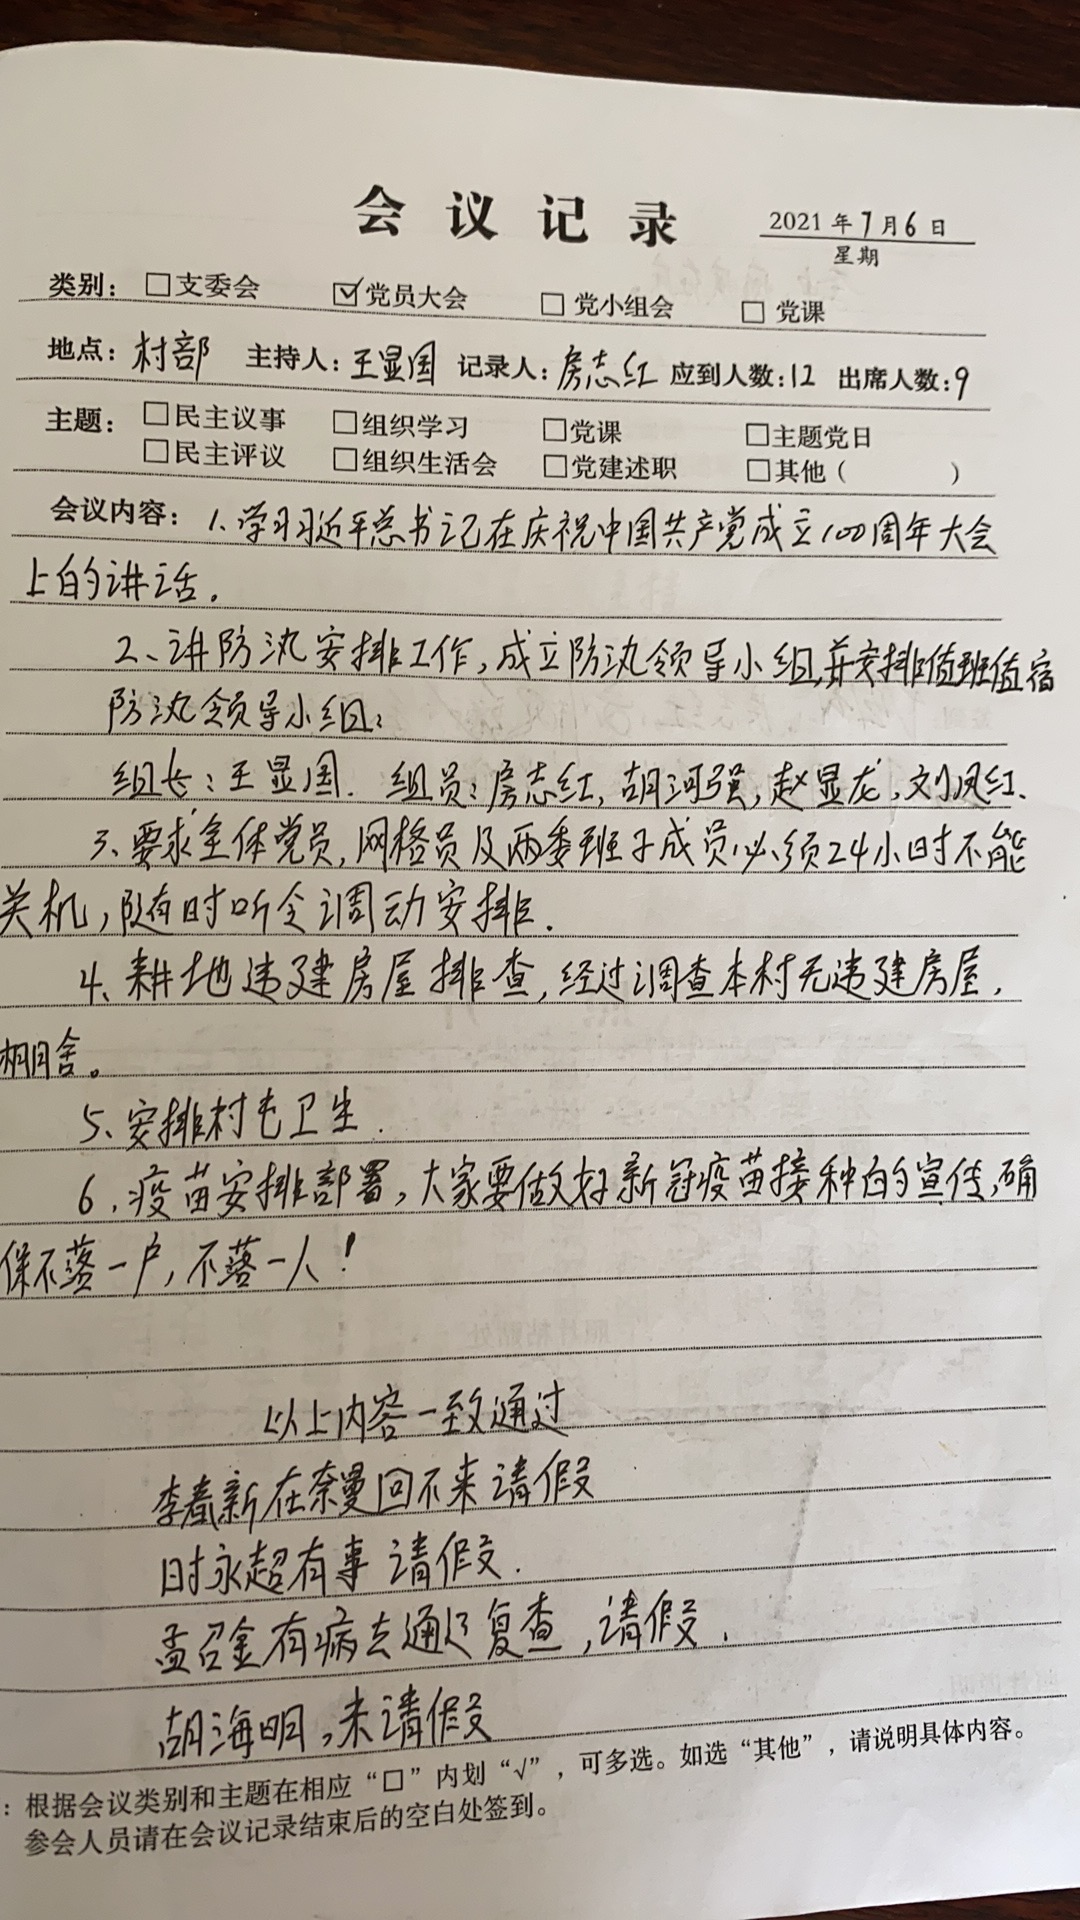 会议记录
2021年7月6日
星期
类别：□支委会 ☑党员大会 □党小组会 □党课
地点：村部 主持人：王显国 记录人：房志红 应到人数：12 出席人数：9
主题：□民主议事 □组织学习 □党课 □主题党日
□民主评议 □组织生活会 □党建述职 □其他（ ）
会议内容：1、学习习近平总书记在庆祝中国共产党成立100周年大会
上的讲话。
2、讲防汛安排工作，成立防汛领导小组，并安排值班值宿
防汛领导小组：
组长：王显国. 组员：房志红，胡河强，赵显龙，刘凤红、
3、要求全体党员，网格员及两委班子成员必须24小时不能
关机，随时听令调动安排.
4、耕地违建房屋排查，经过调查本村无违建房屋，
棚舍。
5、安排村屯卫生.
6、疫苗安排部署，大家要做好新冠疫苗接种的宣传，确
保不落一户，不落一人！
以上内容一致通过
李春新在奈曼回不来请假
时永超有事请假.
孟召金有病去通辽复查，请假.
胡海明，未请假
：根据会议类别和主题在相应“□”内划“√”，可多选。如选“其他”，请说明具体内容。
参会人员请在会议记录结束后的空白处签到。